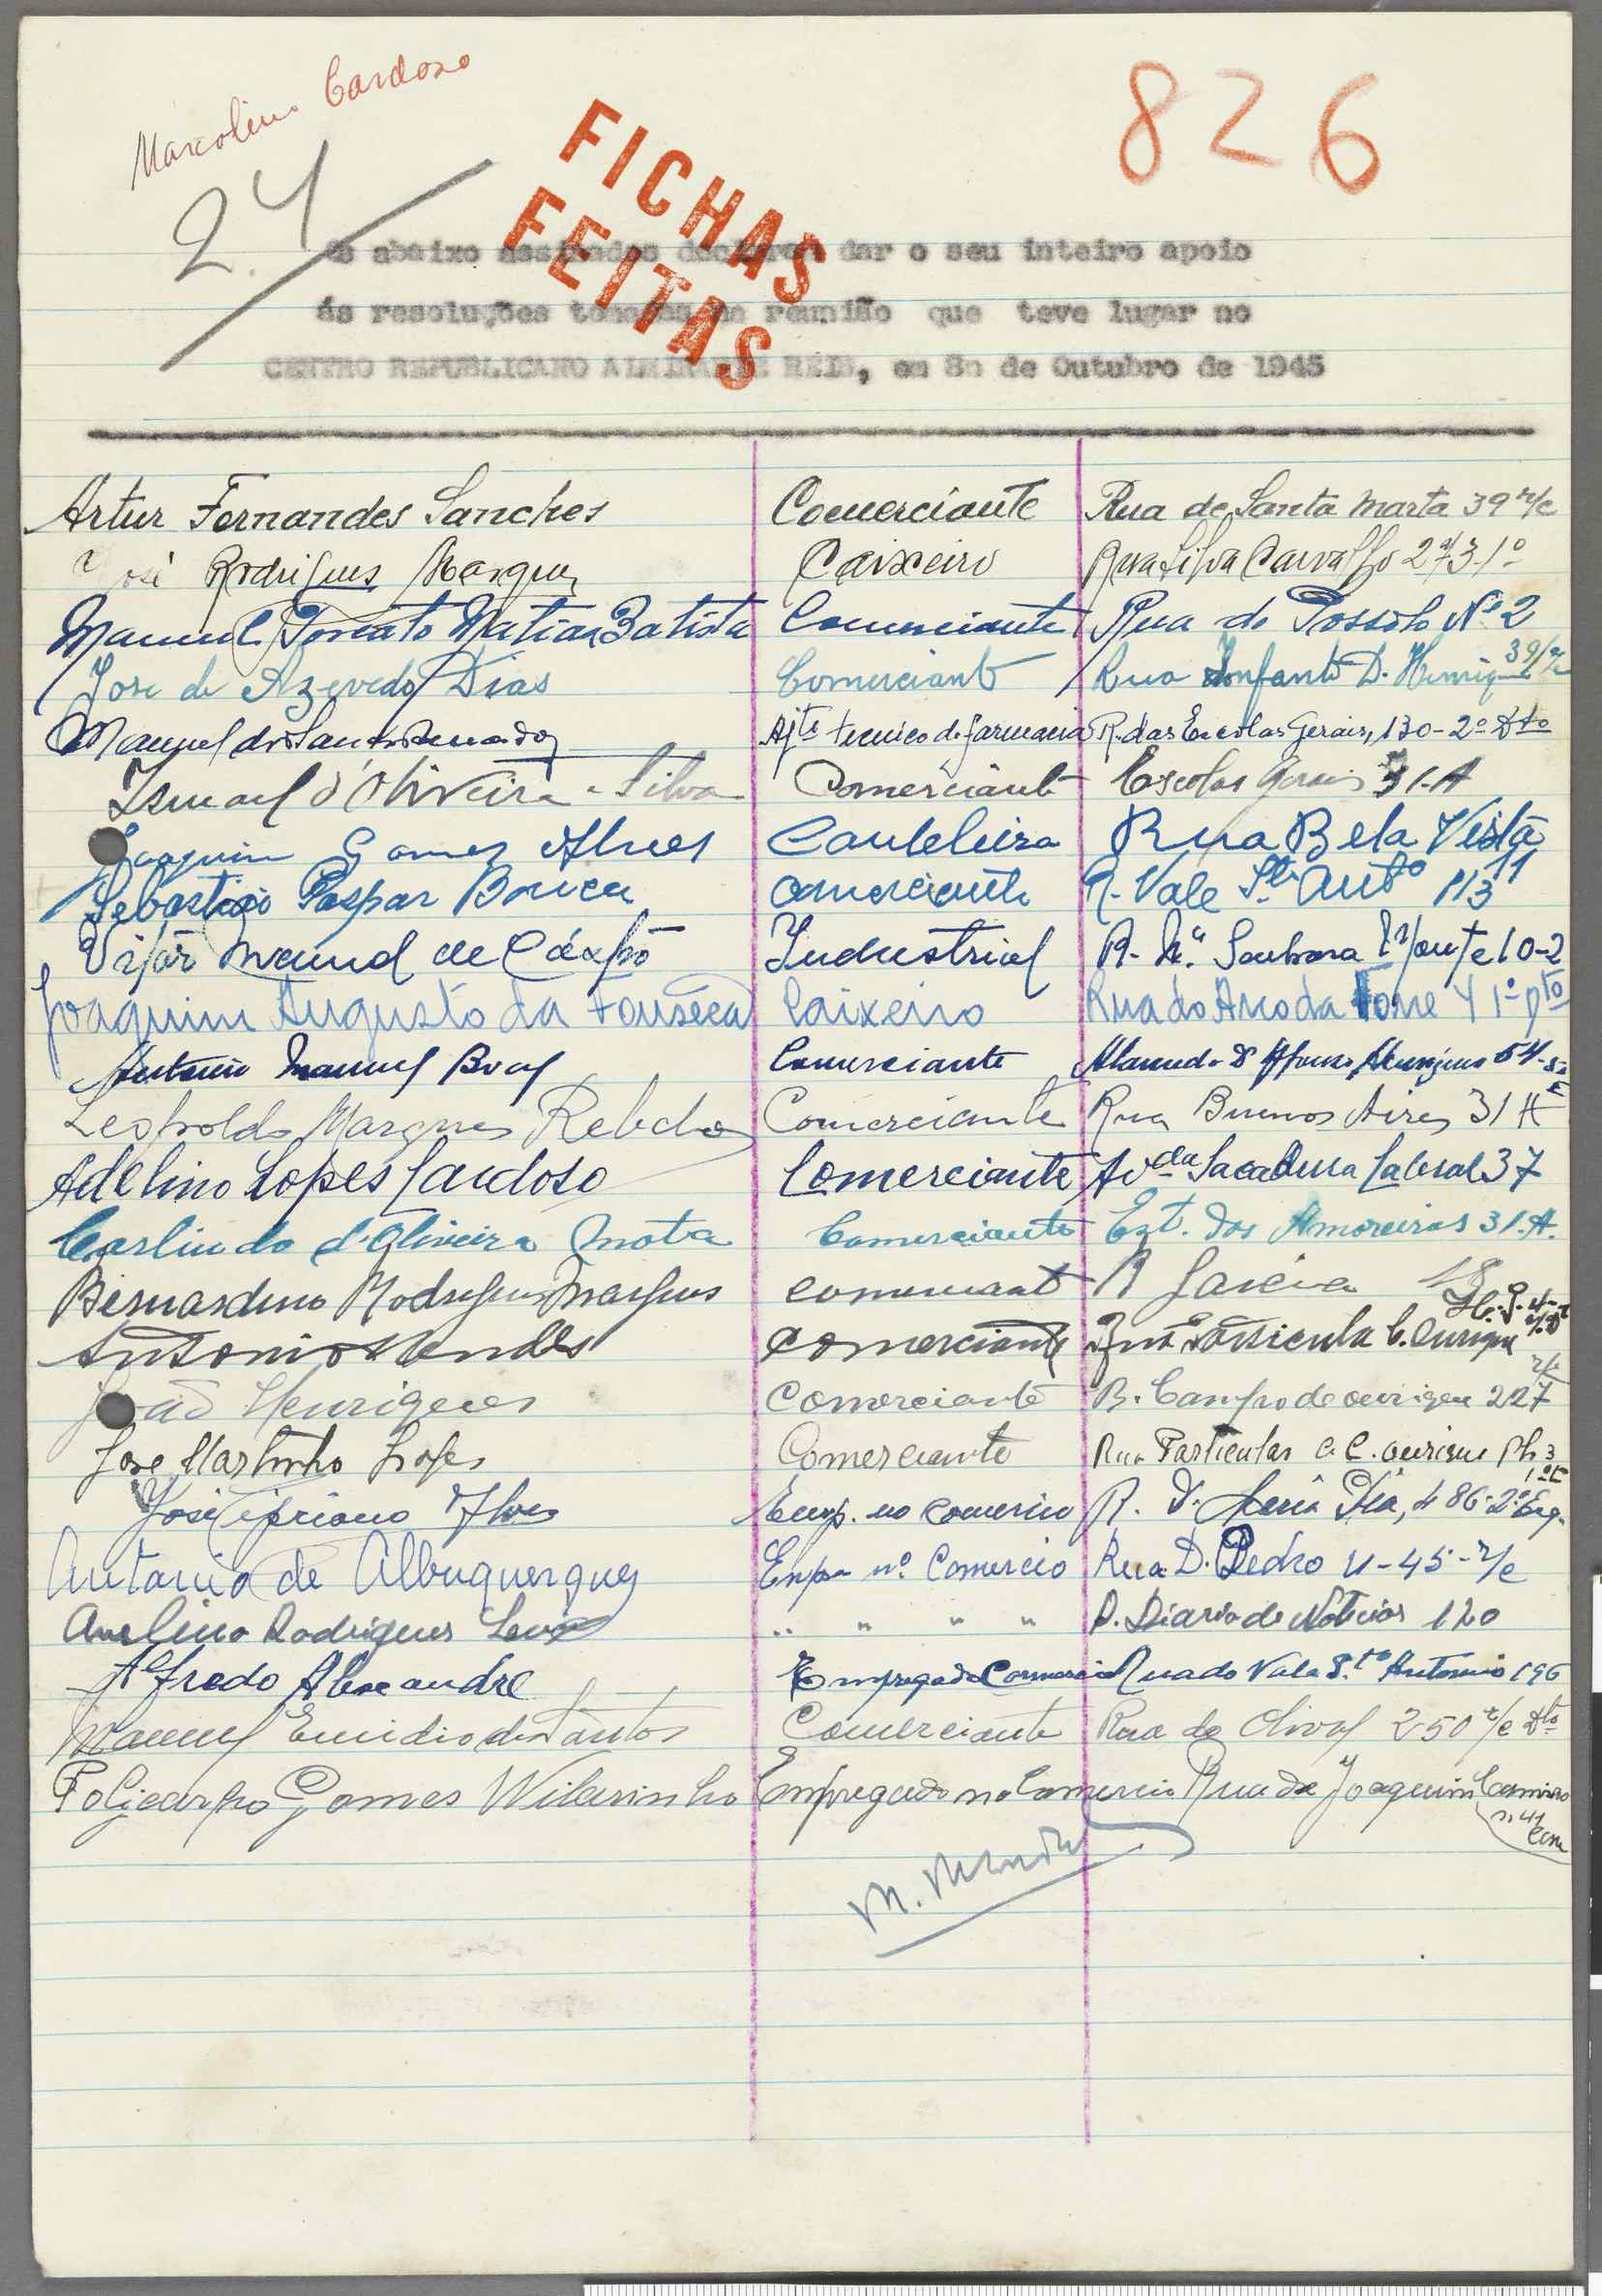 Marcolino Cardoso
826
24
FICHAS
FEITAS
Os abaixo assinados declaram dar o seu inteiro apoio
ás resoluções tomadas na reunião que teve lugar no
CENTRO REPUBLICANO ALMIRANTE REIS, em 8 de Outubro de 1945
Artur Fernandes Sanches Comerciante Rua de Santa Marta 39 r/c
José Rodrigues Marques Caixeiro Rua Silva Carvalho 273-1º
Manuel Torcato Matias Batista Comerciante Rua do Possolo Nº 2
José de Azevedo Dias Comerciante Rua Infante D. Henrique 39 r/c
Manuel dos Santos Ajte tecnico de farmacia R. das Escolas Gerais, 130-2º Dto
Ismael d'Oliveira e Silva Comerciante Escolas Gerais 31-A
Joaquim Gomes Alves Cauteleiro Rua Bela Vista
Sebastião Gaspar Comerciante R. Vale Sto Antº 113
Manuel de Industrial R. Nª Senhora Monte 10-2
Joaquim Augusto da Fonseca Caixeiro Rua do Arco da Torre Y 1º Dto
Antonio Manuel Comerciante Alameda D Afonso Henriques 54-
Leopoldo Marques Rebelo Comerciante Rua Buenos Aires 31 A
Adelino Lopes Cardoso Comerciante Avda Sacadura Cabral 37
Carlindo d'Oliveira Mota Comerciante Ext. das Amoreiras 31.A.
Bernardino Rodrigues Marques comerciante R Garcia
Antonio Mendes comerciante Rua Particular C. Ourique
João Henriques Comerciante R. Campo de ourique 227 r/c
José Martinho Lopes Comerciante Rua Particular a C. ourique Ph 3
José Cipriano Alves Emp. no comercio R. D. Maria Pia, 486-2º Esq.
Antonio de Albuquerque Empº no Comercio Rua D. Pedro V-45-r/c
Avelino Rodrigues " " " " R. Diario de Noticias 120
Alfredo Alexandre Empregado Comercio Rua do Vale S.to Antonio 196
Manuel Emidio dos Santos Comerciante Rua do Olival 250 r/c Dto
Policarpo Gomes Vilarinho Empregado no Comercio Rua de Joaquim Casimiro
n. 41
M. Mendes